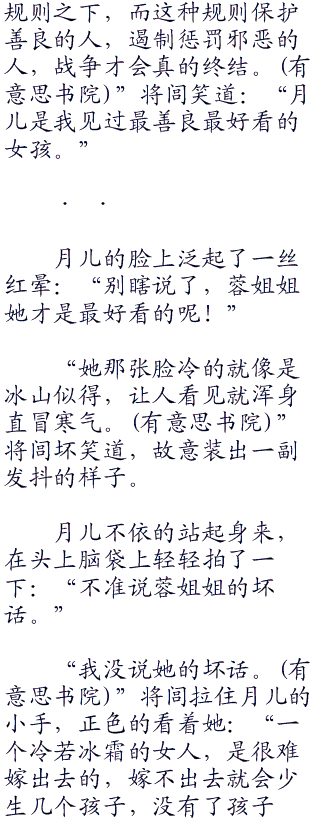 规则之下，而这种规则保护
善良的人，遏制惩罚邪恶的
人，战争才会真的终结。(有
意思书院)”将闾笑道：“月
儿是我见过最善良最好看的
女孩。”
． ．
月儿的脸上泛起了一丝
红晕：“别瞎说了，蓉姐姐
她才是最好看的呢！”
“她那张脸冷的就像是
冰山似得，让人看见就浑身
直冒寒气。(有意思书院)”
将闾坏笑道，故意装出一副
发抖的样子。
月儿不依的站起身来，
在头上脑袋上轻轻拍了一
下：“不准说蓉姐姐的坏
话。”
“我没说她的坏话。(有
意思书院)”将闾拉住月儿的
小手，正色的看着她：“一
个冷若冰霜的女人，是很难
嫁出去的，嫁不出去就会少
生几个孩子，没有了孩子